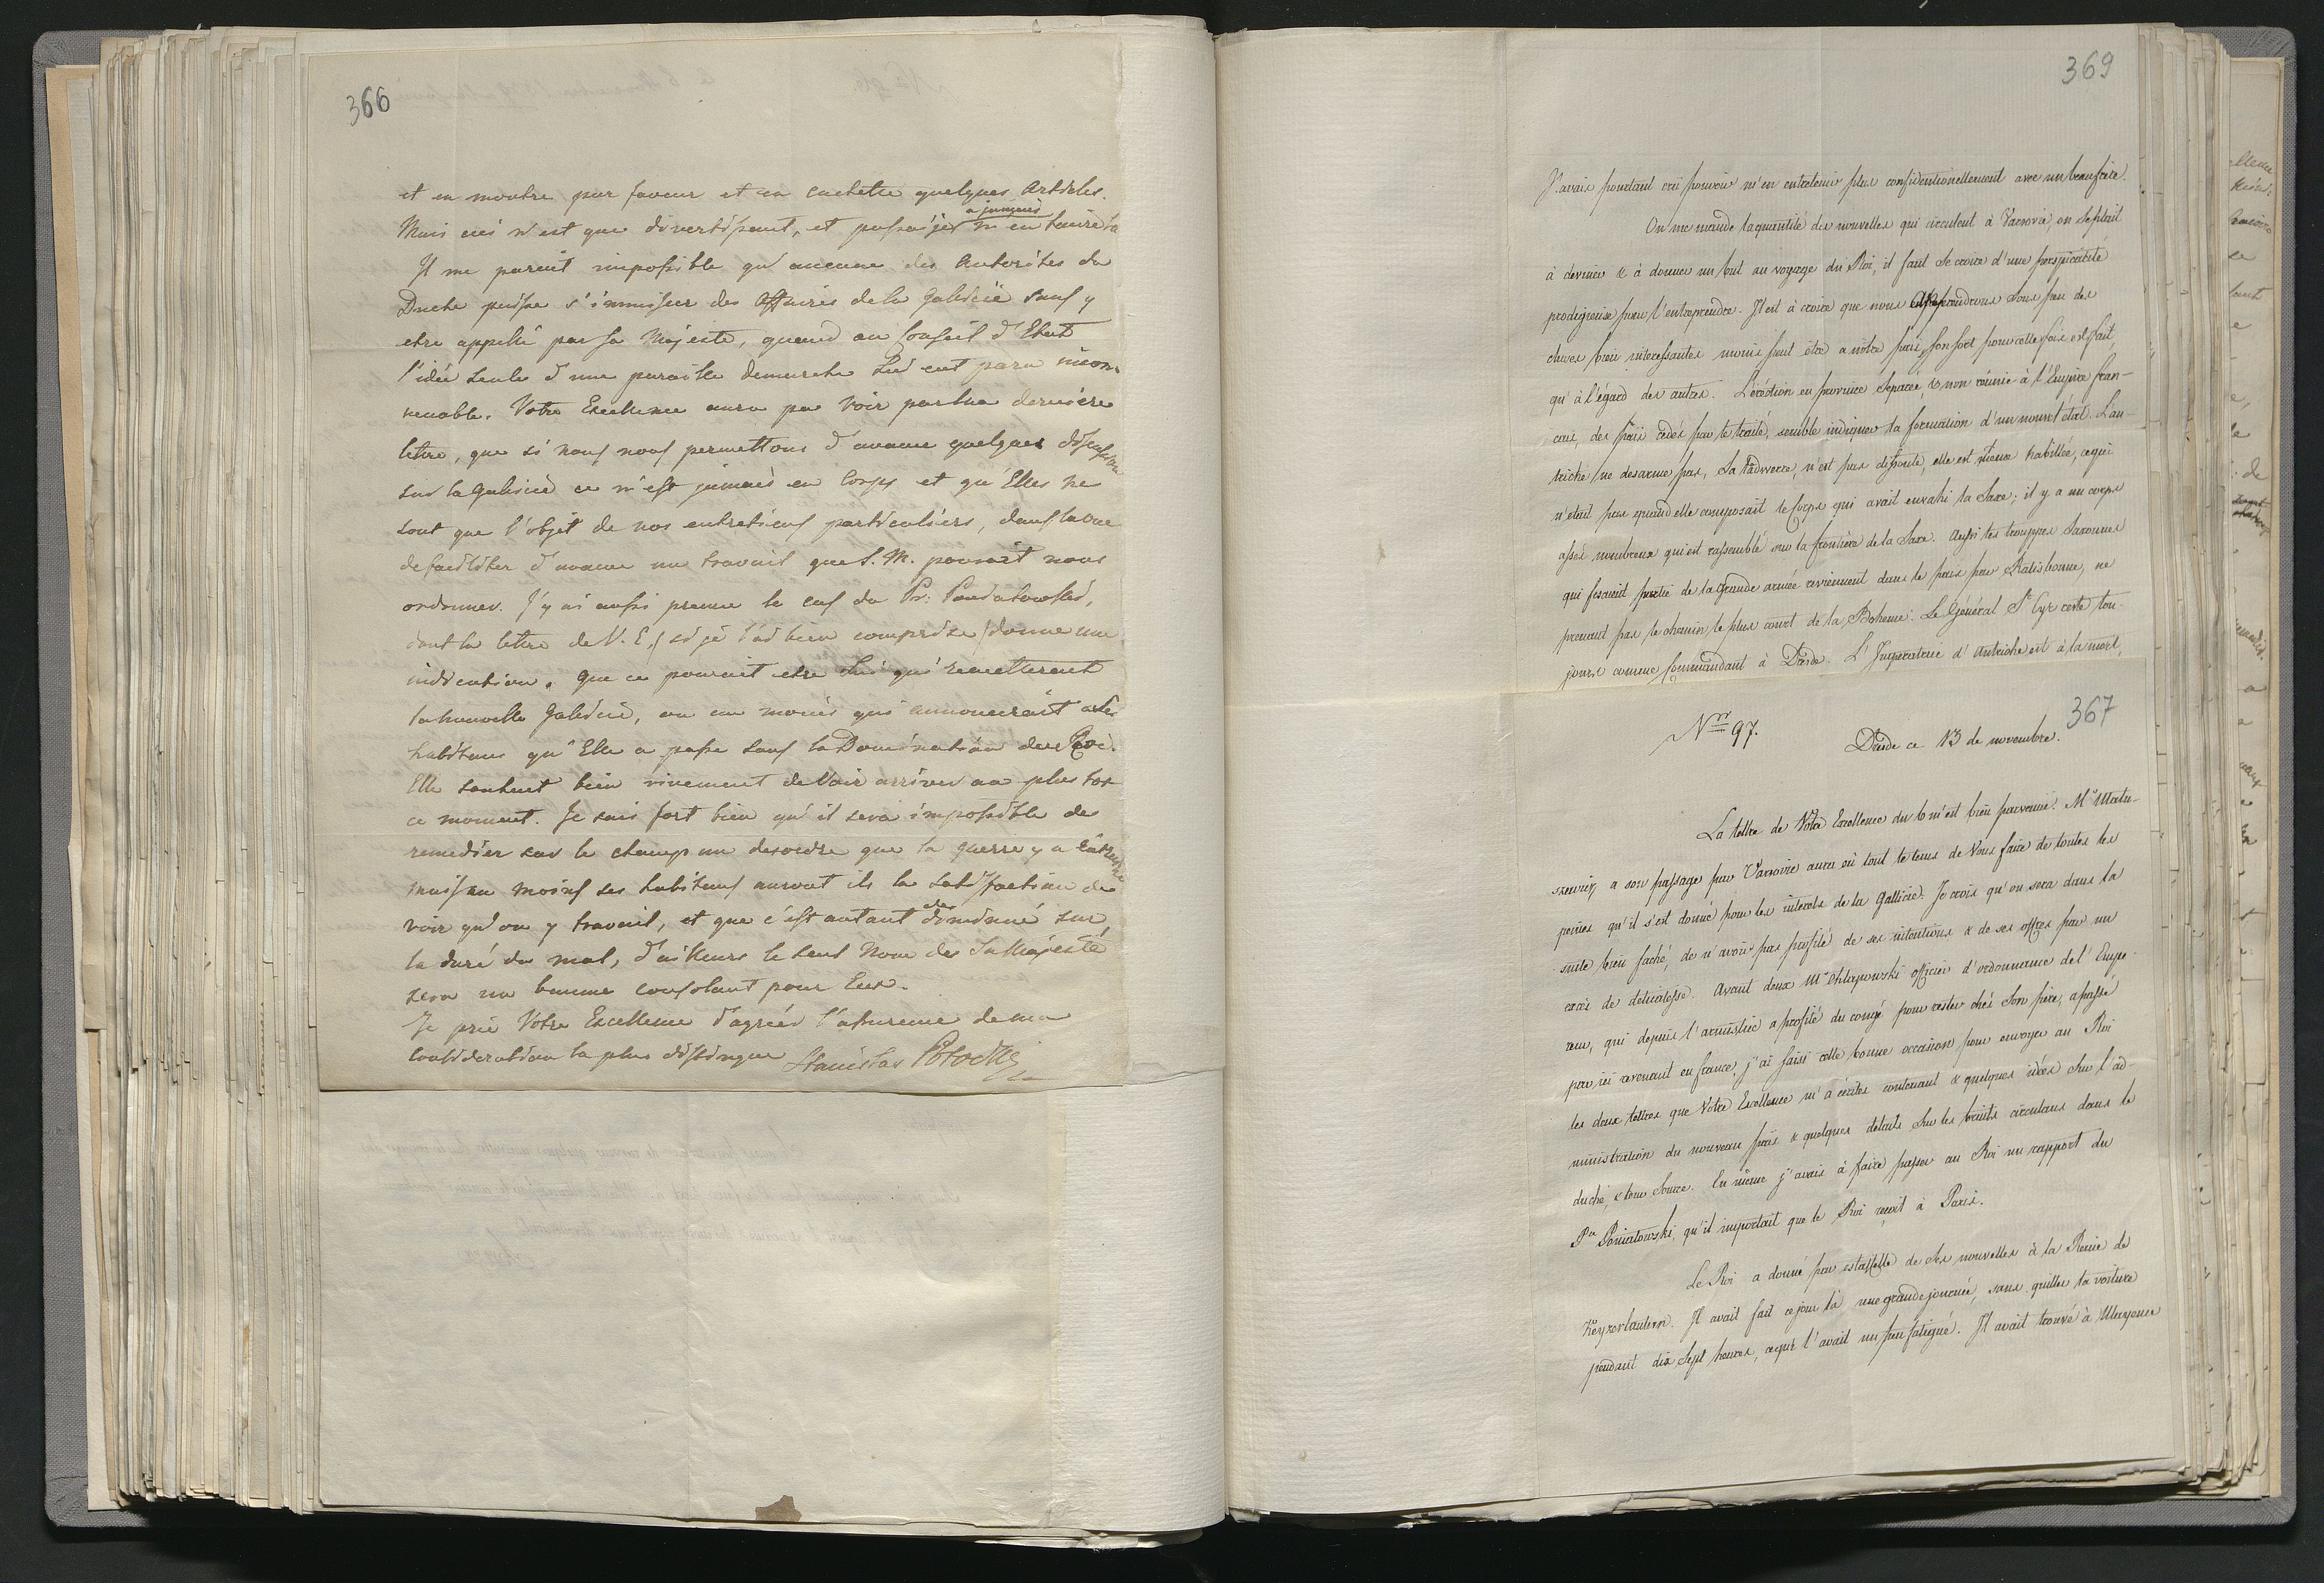 366
et en montre par faveur et en cachette quelques Articles.
Mais ceci n'est que divertissant, et passager
a jamais
Il me parait impossible qu'aucune des Autorités du
Duché puisse s'immiscer des Affaires de la Galicie sans y
etre appellé par Sa Majesté, quand au Conseil d'Etat
l'idée seule d'une pareille demarche lui eut paru incon-
venable. Votre Excellence aura pu voir par ma derniére
lettre, que si nous nous permettons d'avance quelques discussions
sur la Galicie ce n'est jamais en Corps et qu'Elles ne
sont que l'objet de nos entretiens particuliers, dans la vue
de faciliter d'avance un travail que S. M. pouroit nous
ordonner. J'y ai aussi prevenu le cas du Pr: Poniatowski,
dont la lettre de V. E. /si je l'ai bien comprise/ donne une
indication. Que ce pouroit etre lui qui remetteroit
la nouvelle Galicie, ou au moins qui annonceroit a ses
habitans qu'Elle a passé sous la Domination du Roi.
Elle souhait bien vivement de Voir arriver au plus tot
ce moment. Je sais fort bien qu'il sera impossible de
remedier sur le champ au desordre que la guerre y a
mais au moins ses habitans auront ils la satisfaction de
voir qu'on y travail, et que c'est autant de diminué sur
la duré du mal, d'ailleurs le seul Nom de Sa Majesté
sera un baume consolant pour Eux.
Je prie Votre Excellence d'agréer l'assurence de ma
consideration la plus distingue Stanislas Potocki
369
J'avais pourtant crû pouvoir m'en entretenir plus confidentionellement avec un beaufrère.
On me mande la quantité des nouvelles qui circulent à Varsovie, on se plait
à deviner & à donner un but au voyage du Roi, il faut se croire d'une perspicacité
prodigieuse pour l'entreprendre. Il est à croire que nous apprendrons sous peu des
choses bien interessantes moins peut être a nôtre païs, son sort pour cette fois est fait,
qu'à l'égard des autres. L'érection en province separée, & non réunie à l'Empire fran-
cais, des païs cedés par le traité, semble indiquer la formation d'un nouvel état. L'au-
triche ne desarme pas, La Landwerre, n'est pas dissoute, elle est mieux habillée, ce qui
n'etait pas quand elle composait le Corps qui avait envahi la Saxe; il y a un corps
assés nombreux qui est rassemblé sur la frontière de la Saxe. Aussi les trouppes Saxonnes
qui fesaient partie de la grande armée reviennent dans le païs par Ratisbonne, ne
prenant pas le chemin le plus court de la Boheme. Le Général St Cyr reste tou-
jours comme Commandant à Dresde. L'Imperatrice d'Autriche est à la mort.
367
Nro 97. Dresde ce 13 de novembre.
La lettre de Vôtre Excellence du 6 m'est bien parvenue. Mr Matu-
szewicz a son passage par Varsovie aura eû tout le tems de Vous faire de toutes les
peines qu'il s'est donné pour les interets de la Gallicie. Je crois qu'on sera dans la
suite bien faché, de n'avoir pas profité de ses intentions & de ses offres par un
excès de delicatesse. Avant deux Mr Chlapowski officier d'ordonnance de l'Empe-
reur, qui depuis l'armistice a profité du congé pour rester chés Son père, a passé
par ici revenant en france, j'ai saisi cette bonne occasion pour envoyer au Roi
les deux lettres que Vôtre Excellence m'a écrites contenant & quelques idées sur l'ad-
ministration du nouveau païs & quelques details sur les bruits circulans dans le
duché, & leur source. En même j'avais à faire passer au Roi un rapport du
Pce Poniatowski, qu'il importait que le Roi reçoit à Paris.
Le Roi a donné par estaffette de ses nouvelles à la Reine de
Keyserlautern. Il avait fait ce jour là une grande journée, sans quitter la voiture
pendant dix sept heures, ce qui l'avait un peu fatigué. Il avait trouvé à Mayence